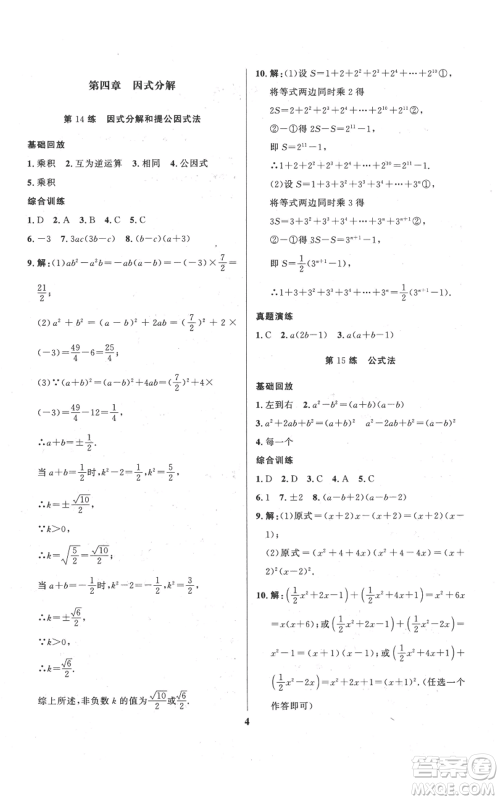 第四章　因式分解
第 14 练　因式分解和提公因式法
基础回放
1. 乘积　2. 互为逆运算　3. 相同　4. 公因式
5. 乘积
综合训练
1. D　2. A　3. D　4. D　5. D
6. －3　7. 3ac(3b－c)　8. (b－c)(a＋3)
9. 解：(1)ab²－a²b＝－ab(a－b)＝－(7/2)×(－3)＝
21/2；
(2)a²＋b²＝(a＋b)²－2ab＝(7/2)²＋2×
(－3)＝49/4－6＝25/4；
(3)∵(a＋b)²＝(a－b)²＋4ab＝(7/2)²＋4×
(－3)＝49/4－12＝1/4，
∴a＋b＝±1/2.
当 a＋b＝1/2时，k²－2＝1/2，k²＝5/2，
∴k＝±√10/2.
∵k＞0，
∴k＝√(5/2)＝√10/2；
当 a＋b＝－1/2时，k²－2＝－1/2，k²＝3/2，
∴k＝±√6/2.
∵k＞0，
∴k＝√6/2.
综上所述，非负数 k 的值为√10/2或√6/2.
10. 解：(1)设 S＝1＋2＋2²＋2³＋2⁴＋…＋2¹⁰①，
将等式两边同时乘 2 得
2S＝2＋2²＋2³＋2⁴＋…＋2¹¹②，
②－①得S＝2¹¹－1，
∴1＋2＋2²＋2³＋2⁴＋…＋2¹⁰＝2¹¹－1.
(2)设 S＝1＋3＋3²＋3³＋3⁴＋…＋3ⁿ①，
将等式两边同时乘 3 得
3S＝3＋3²＋3³＋3⁴＋…＋3ⁿ⁺¹②，
②－①得 3S－S＝3ⁿ⁺¹－1，
即 S＝1/2(3ⁿ⁺¹－1)，
∴1＋3＋3²＋3³＋3⁴＋…＋3ⁿ＝1/2(3ⁿ⁺¹－1).
真题演练
1. C　2. a(2b－1)　3. a(a＋b)
第 15 练　公式法
基础回放
1. 左到右　2. a²－b²＝(a＋b)(a－b)
3. a²＋2ab＋b²＝(a＋b)²　a²－2ab＋b²＝(a－b)²
4. 每一个
综合训练
1. D　2. D　3. D　4. C　5. A
6. 1　7. ±2　8. (a－b＋2)(a－b－2)
9. 解：(1)原式＝(x＋2)(x－2)－(x＋2)＝(x＋
2)(x－3)；
(2)原式＝(x²－4x＋4)(x²＋4x＋4)＝(x＋
2)²(x－2)².
10. 解：(1/2x²＋2x－1)＋(1/2x²＋4x＋1)＝x²＋6x
＝x(x＋6)；或(1/2x²＋2x－1)＋(1/2x²－2x)＝
x²－1＝(x＋1)(x－1)；或(1/2x²＋4x＋1)＋
(1/2x²－2x)＝x²＋2x＋1＝(x＋1)². (任选一个
作答即可)
4